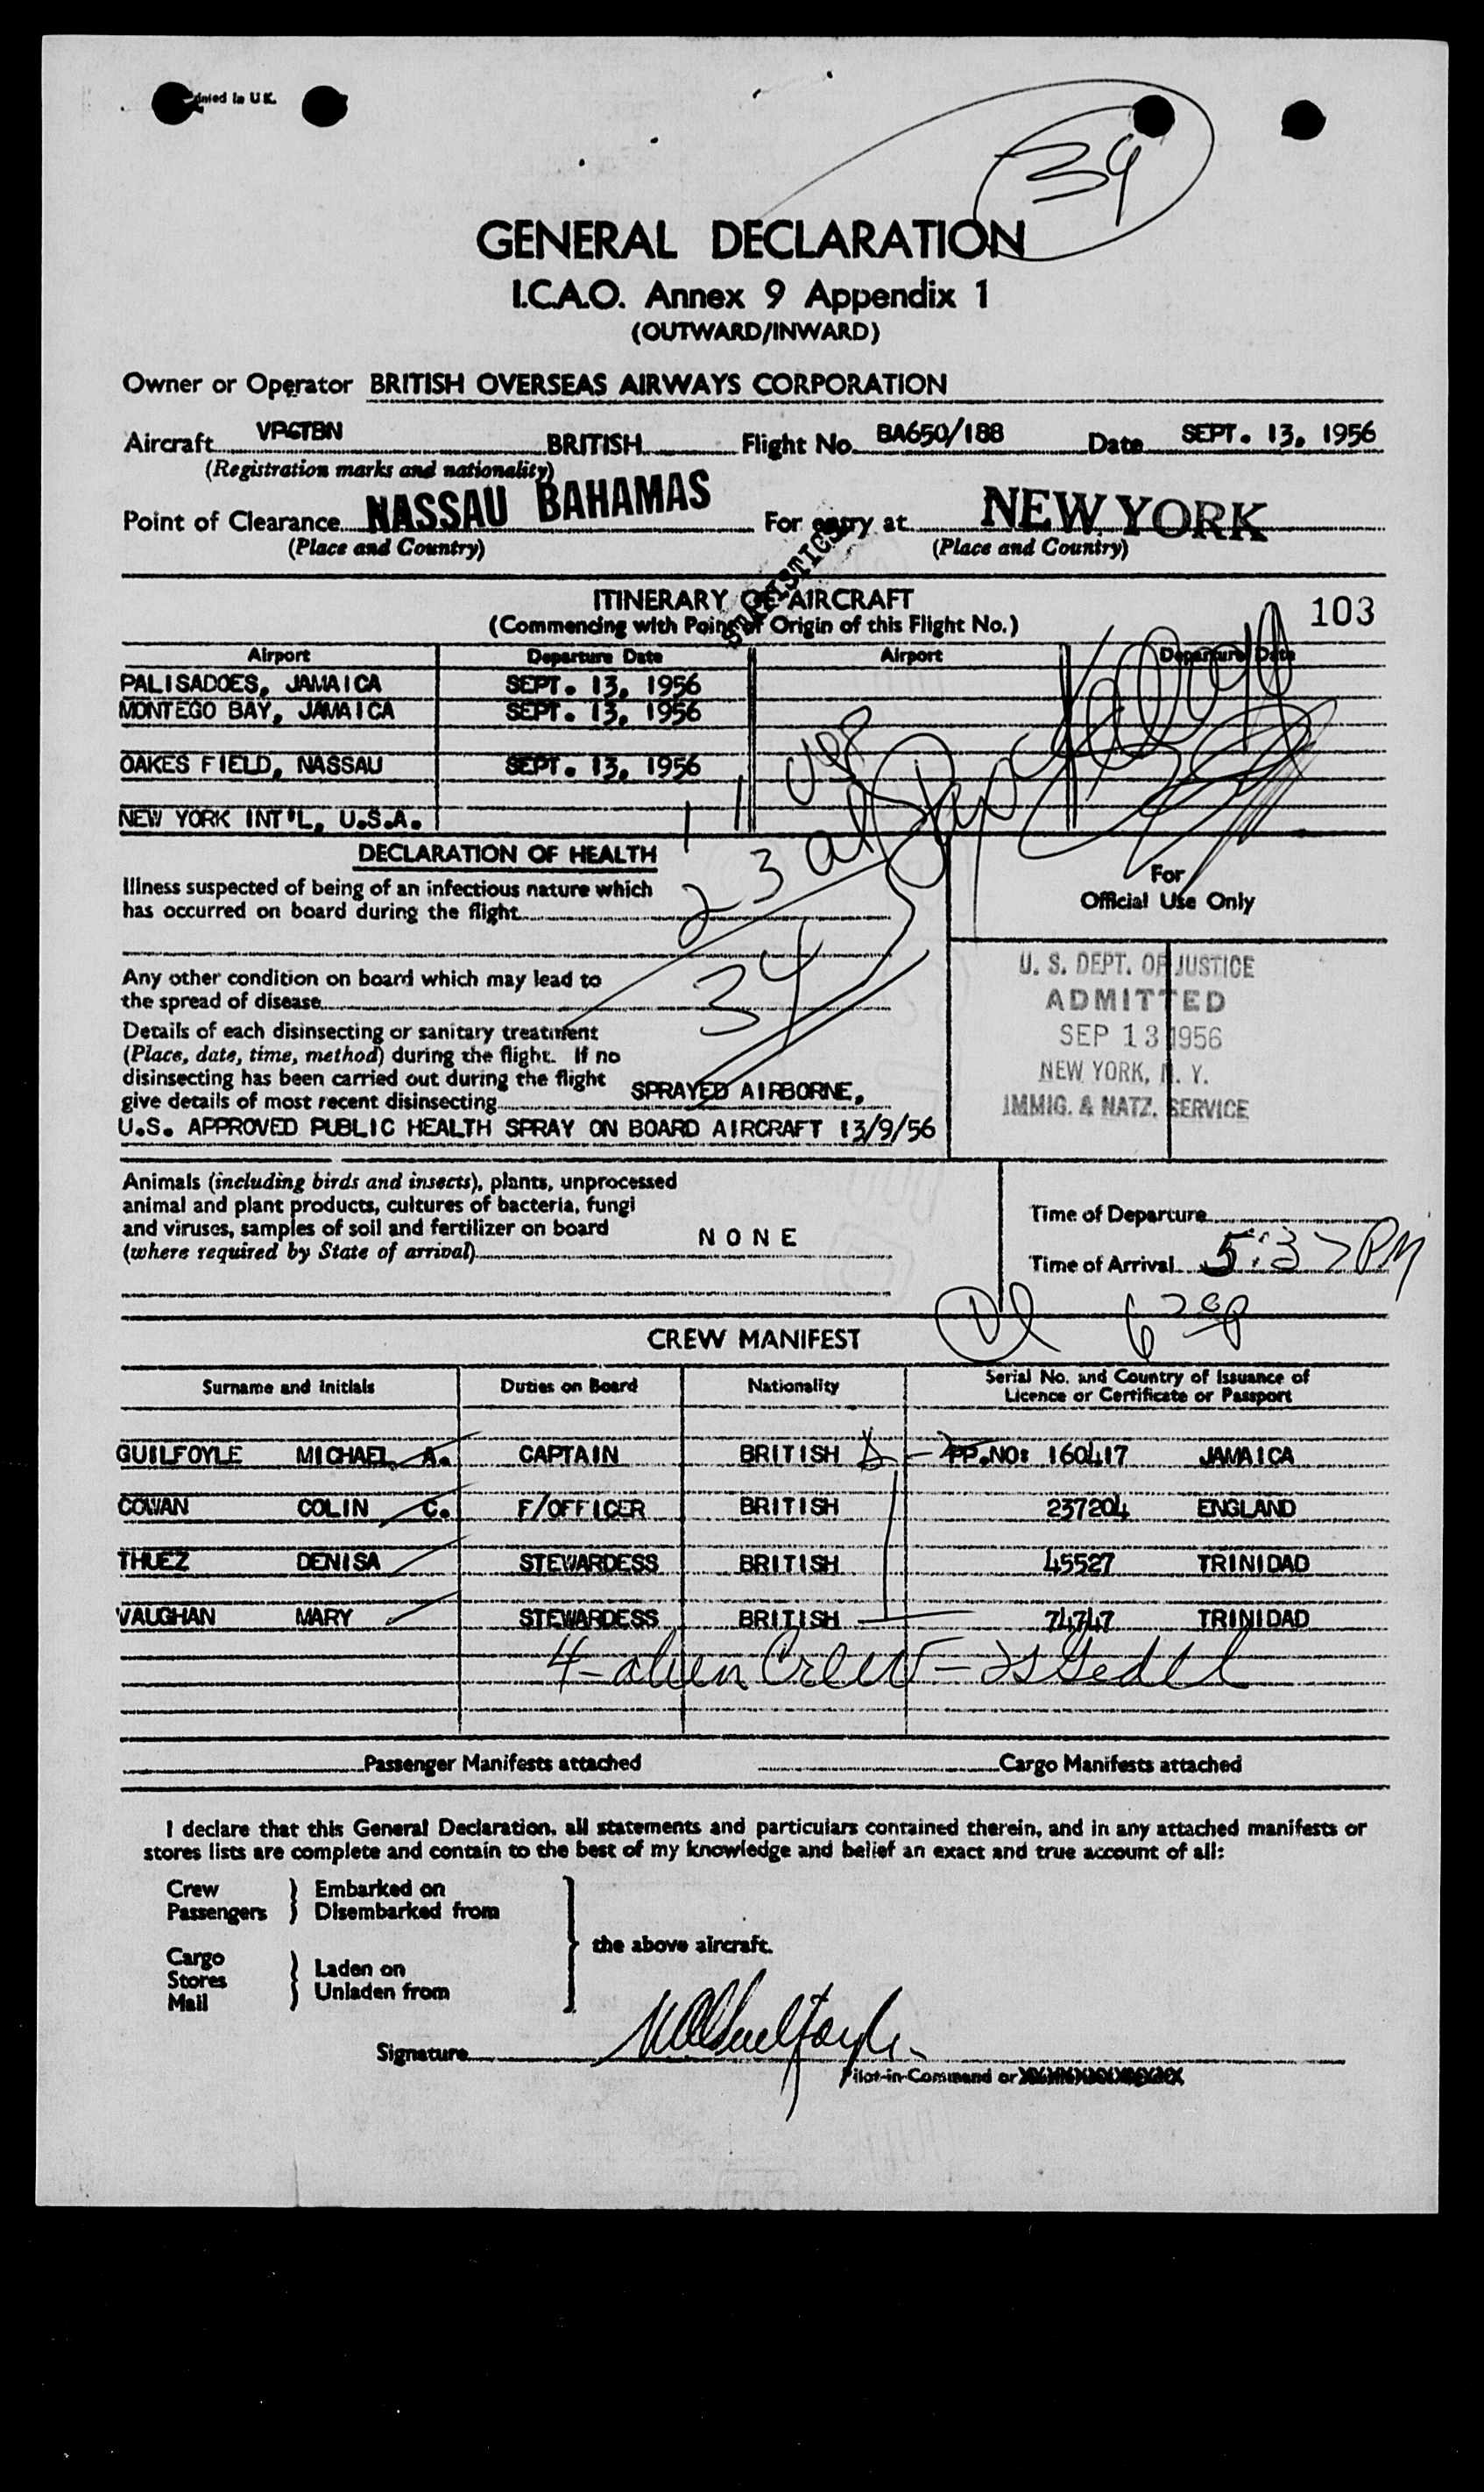 Printed in U.K.
34
GENERAL DECLARATION
I.C.A.O. Annex 9 Appendix 1
(OUTWARD/INWARD)
Owner or Operator BRITISH OVERSEAS AIRWAYS CORPORATION
Aircraft VPGTBN BRITISH Flight No. BA650/188 Date SEPT. 13, 1956
(Registration marks and nationality)
Point of Clearance NASSAU BAHAMAS For entry at NEW YORK
(Place and Country) (Place and Country)
STATISTICS
ITINERARY OF AIRCRAFT
(Commencing with Point of Origin of this Flight No.) 103
Airport Departure Date Airport Departure Date
PALISADOES, JAMAICA SEPT. 13, 1956
MONTEGO BAY, JAMAICA SEPT. 13, 1956
OAKES FIELD, NASSAU SEPT. 13, 1956
NEW YORK INT'L, U.S.A.
DECLARATION OF HEALTH
Illness suspected of being of an infectious nature which
has occurred on board during the flight
23
34
For
Official Use Only
Any other condition on board which may lead to
the spread of disease
U. S. DEPT. OF JUSTICE
ADMITTED
SEP 13 1956
NEW YORK, N. Y.
IMMIG. & NATZ. SERVICE
Details of each disinsecting or sanitary treatment
(Place, date, time, method) during the flight. If no
disinsecting has been carried out during the flight
give details of most recent disinsecting SPRAYED AIRBORNE,
U.S. APPROVED PUBLIC HEALTH SPRAY ON BOARD AIRCRAFT 13/9/56
Animals (including birds and insects), plants, unprocessed
animal and plant products, cultures of bacteria, fungi
and viruses, samples of soil and fertilizer on board
(where required by State of arrival) NONE
Time of Departure
Time of Arrival 5:37 PM
CREW MANIFEST
Surname and Initials Duties on Board Nationality Serial No. and Country of Issuance of
Licence or Certificate or Passport
GUILFOYLE MICHAEL A. CAPTAIN BRITISH PP.NO: 160417 JAMAICA
COWAN COLIN C. F/OFFICER BRITISH 237204 ENGLAND
THUEZ DENISA STEWARDESS BRITISH 45527 TRINIDAD
VAUGHAN MARY STEWARDESS BRITISH 74747 TRINIDAD
4-alien Crew-
Passenger Manifests attached Cargo Manifests attached
I declare that this General Declaration, all statements and particulars contained therein, and in any attached manifests or
stores lists are complete and contain to the best of my knowledge and belief an exact and true account of all:
Crew
Passengers } Embarked on
Disembarked from
the above aircraft.
Cargo
Stores
Mail } Laden on
Unladen from
Signature MAGuilfoyle
Pilot-in-Command or